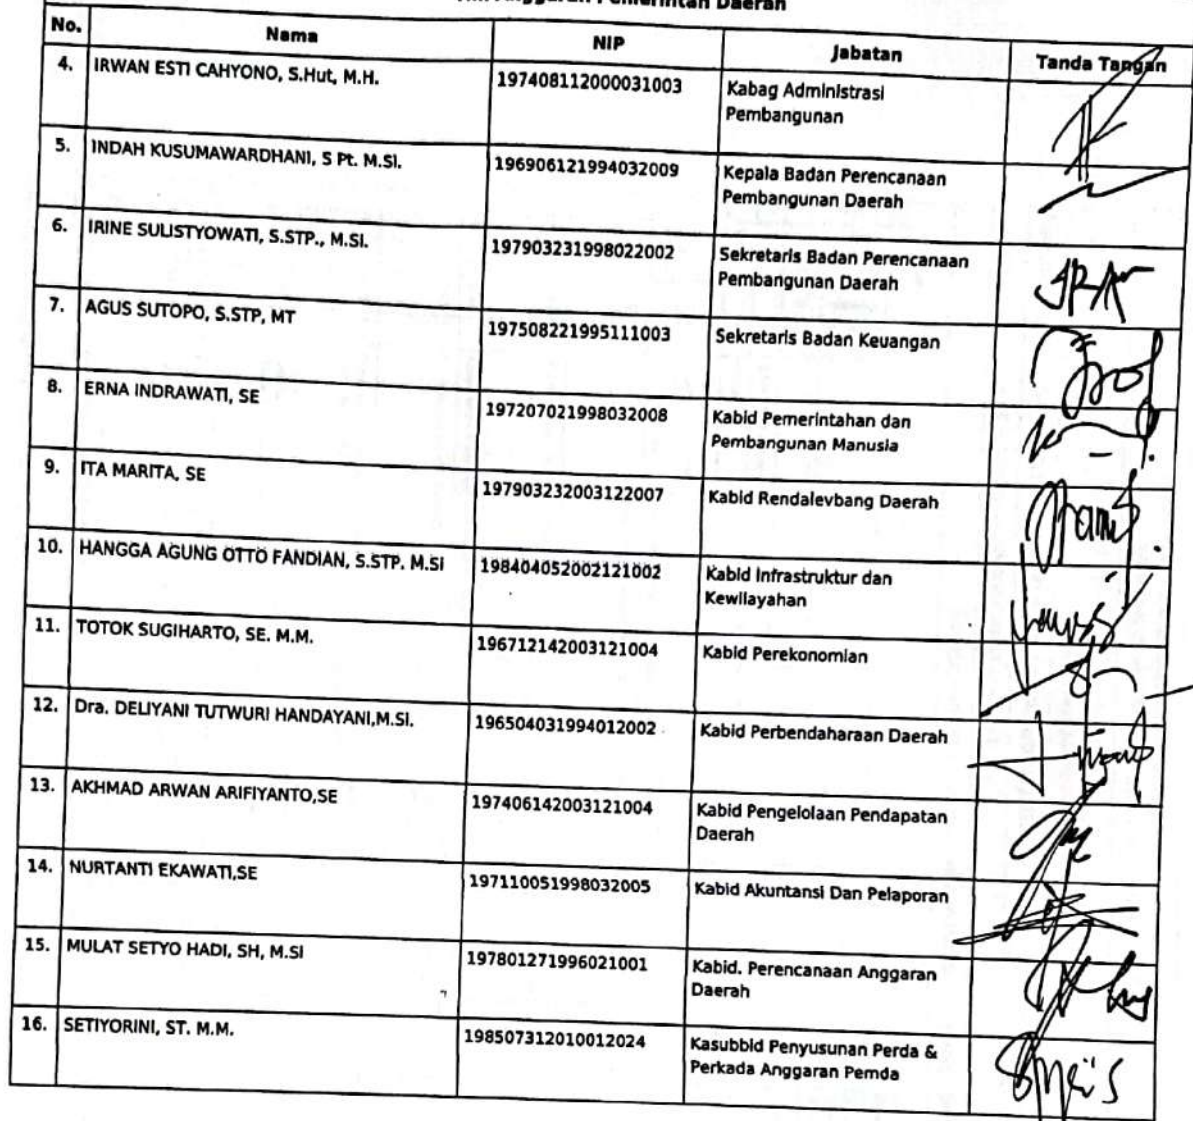 Anggaran Pemerintah Daerah
No. Nama NIP Jabatan Tanda Tangan
4. IRWAN ESTI CAHYONO, S.Hut, M.H. 197408112000031003 Kabag Administrasi
Pembangunan
5. INDAH KUSUMAWARDHANI, S Pt. M.Si. 196906121994032009 Kepala Badan Perencanaan
Pembangunan Daerah
6. IRINE SULISTYOWATI, S.STP., M.Si. 197903231998022002 Sekretaris Badan Perencanaan
Pembangunan Daerah
7. AGUS SUTOPO, S.STP, MT 197508221995111003 Sekretaris Badan Keuangan
8. ERNA INDRAWATI, SE 197207021998032008 Kabid Pemerintahan dan
Pembangunan Manusia
9. ITA MARITA, SE 197903232003122007 Kabid Rendalevbang Daerah
10. HANGGA AGUNG OTTO FANDIAN, S.STP. M.Si 198404052002121002 Kabid Infrastruktur dan
Kewilayahan
11. TOTOK SUGIHARTO, SE. M.M. 196712142003121004 Kabid Perekonomian
12. Dra. DELIYANI TUTWURI HANDAYANI,M.Si. 196504031994012002 Kabid Perbendaharaan Daerah
13. AKHMAD ARWAN ARIFIYANTO,SE 197406142003121004 Kabid Pengelolaan Pendapatan
Daerah
14. NURTANTI EKAWATI,SE 197110051998032005 Kabid Akuntansi Dan Pelaporan
15. MULAT SETYO HADI, SH, M.Si 197801271996021001 Kabid. Perencanaan Anggaran
Daerah
16. SETIYORINI, ST. M.M. 198507312010012024 Kasubbid Penyusunan Perda &
Perkada Anggaran Pemda